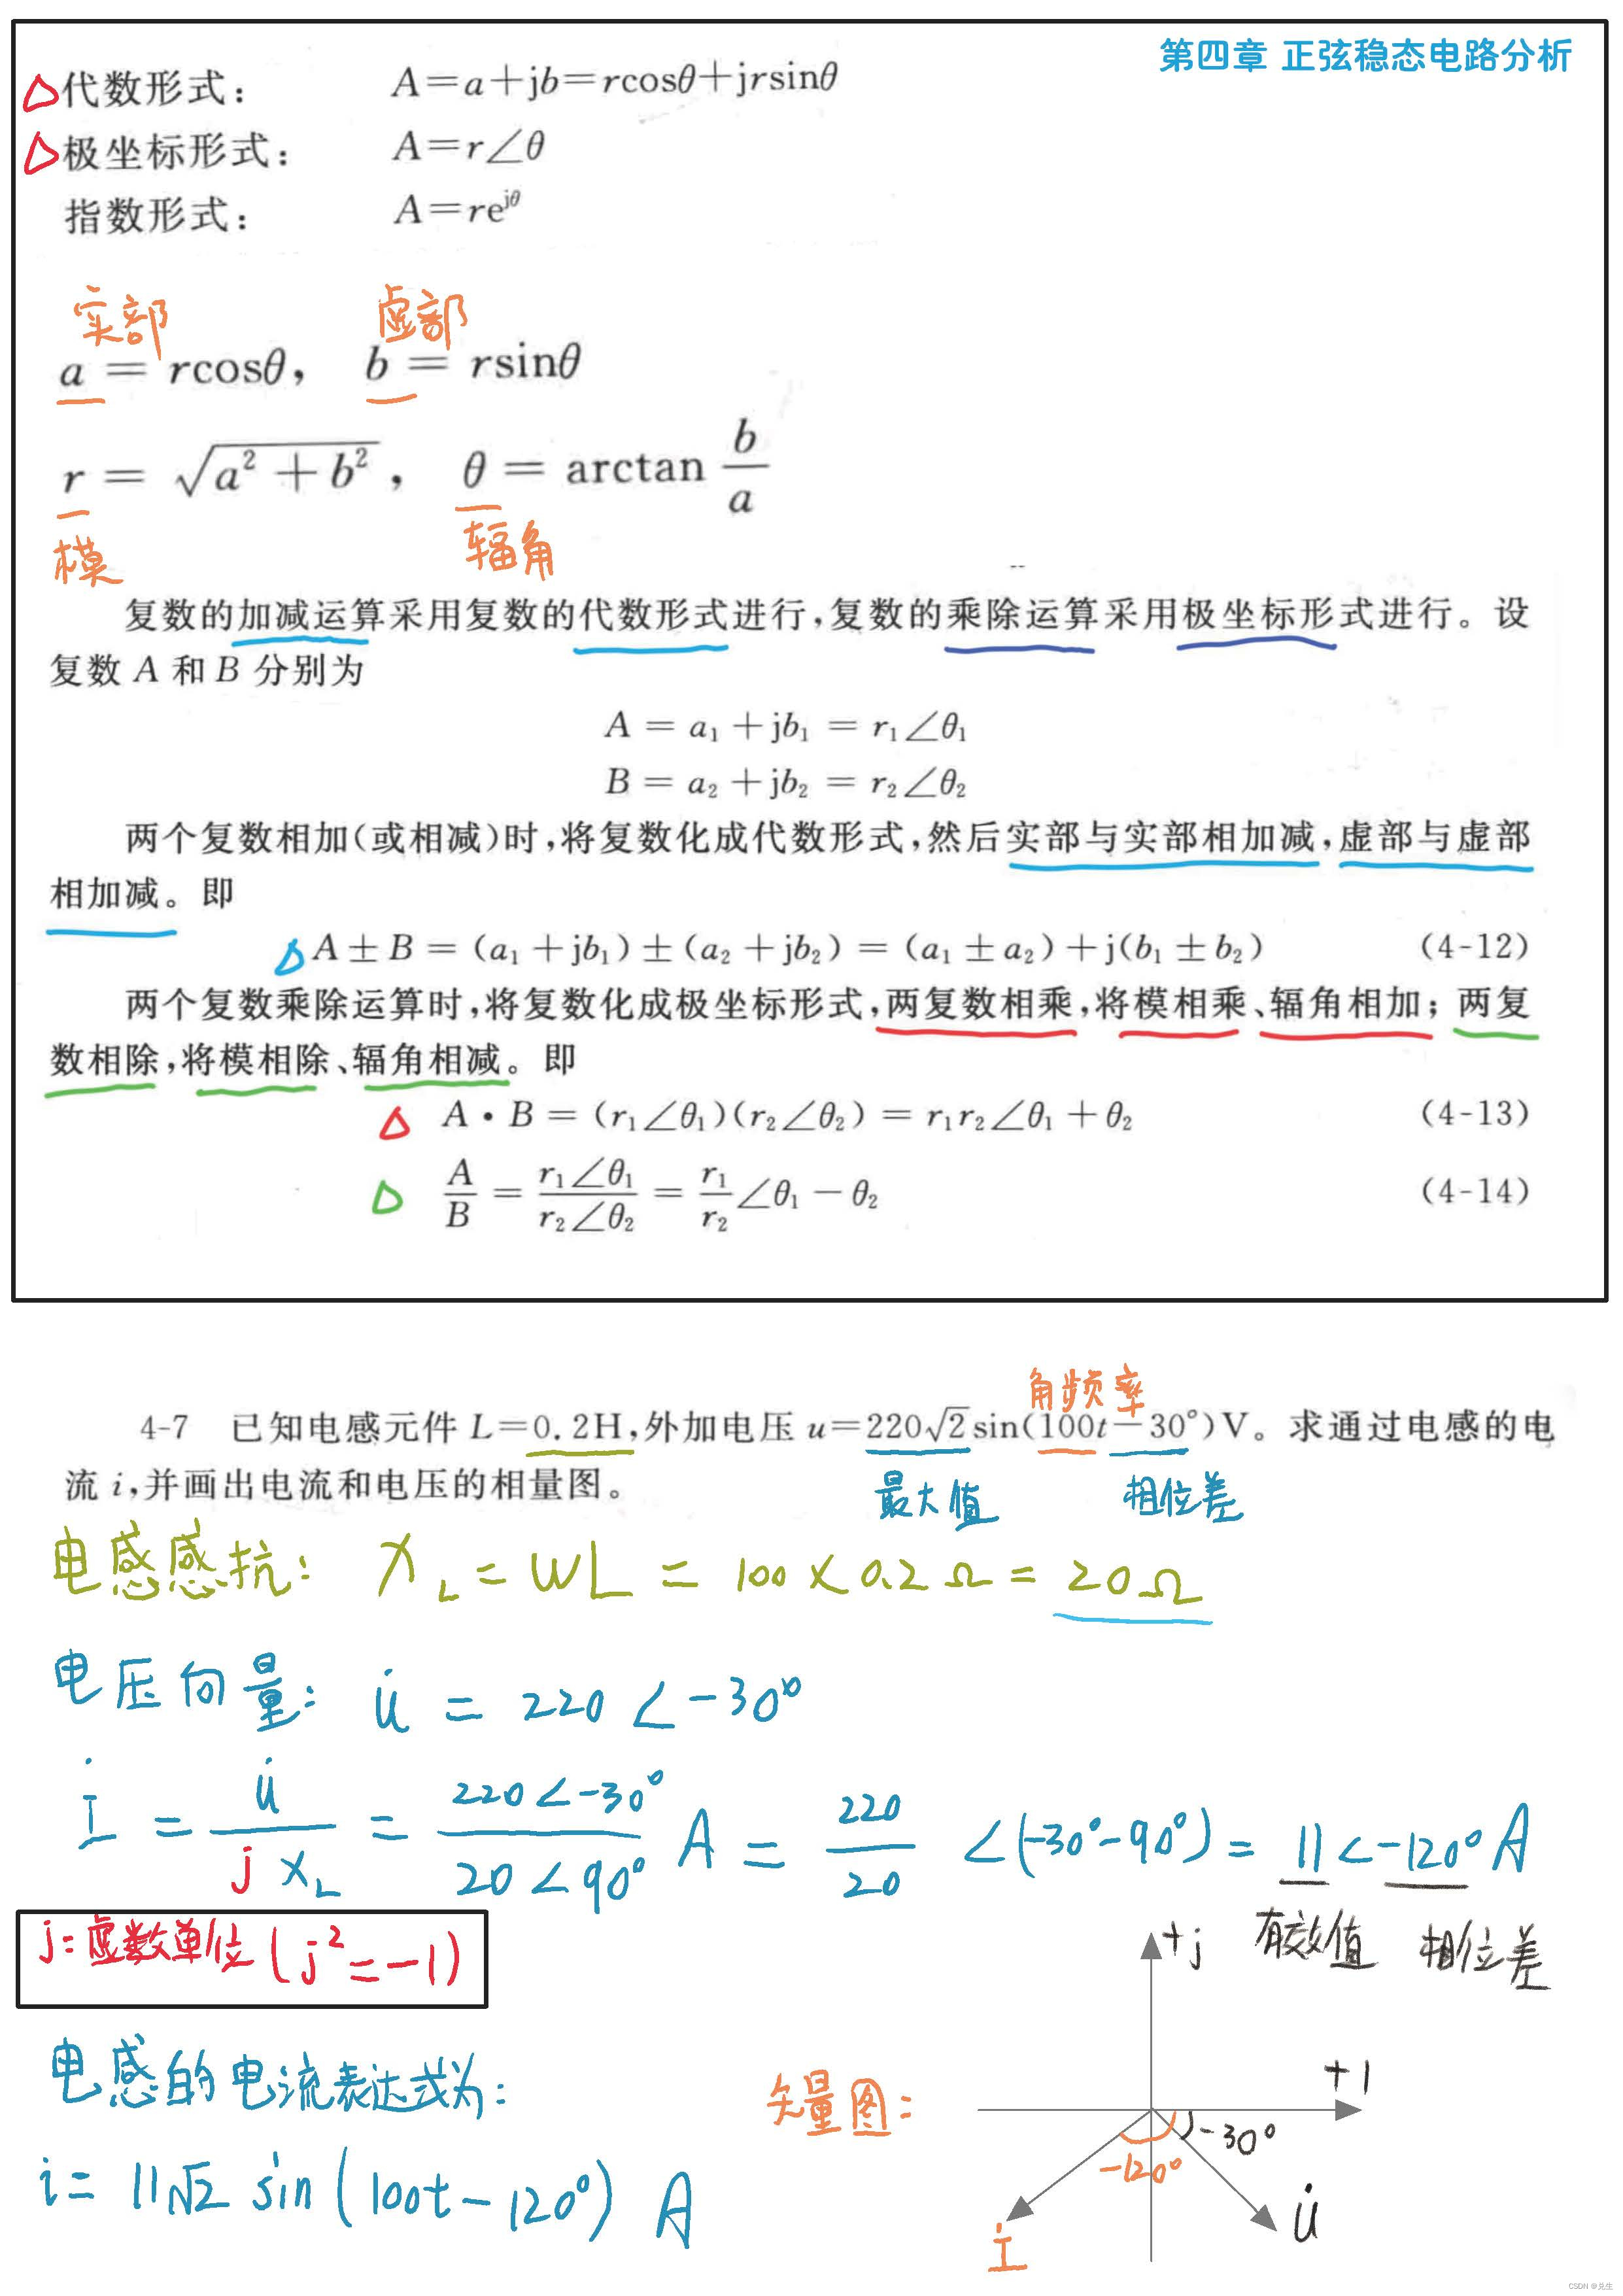 第四章 正弦稳态电路分析
代数形式: A=a+jb=rcosθ+jrsinθ
极坐标形式: A=r∠θ
指数形式: A=re^{jθ}
实部 虚部
a = rcosθ, b = rsinθ
r = √(a²+b²), θ = arctan b/a
模 辐角
复数的加减运算采用复数的代数形式进行,复数的乘除运算采用极坐标形式进行。设
复数 A 和 B 分别为
A = a₁ + jb₁ = r₁∠θ₁
B = a₂ + jb₂ = r₂∠θ₂
两个复数相加(或相减)时,将复数化成代数形式,然后实部与实部相加减,虚部与虚部
相加减。即
A ± B = (a₁ + jb₁) ± (a₂ + jb₂) = (a₁ ± a₂) + j(b₁ ± b₂) (4-12)
两个复数乘除运算时,将复数化成极坐标形式,两复数相乘,将模相乘、辐角相加; 两复
数相除,将模相除、辐角相减。即
A • B = (r₁∠θ₁)(r₂∠θ₂) = r₁r₂∠θ₁ + θ₂ (4-13)
A/B = r₁∠θ₁/r₂∠θ₂ = r₁/r₂ ∠θ₁ − θ₂ (4-14)
角频率
4-7 已知电感元件 L=0.2H,外加电压 u=220√2sin(100t−30°)V。求通过电感的电
流 i,并画出电流和电压的相量图。
最大值 相位差
电感感抗: X_L = WL = 100×0.2Ω = 20Ω
电压向量: U̇ = 220∠-30°
İ = U̇/jX_L = 220∠-30°/20∠90° A = 220/20 ∠(-30°-90°) = 11∠-120° A
有效值 相位差
j=虚数单位(j²=-1)
电感的电流表达式为:
i= 11√2 sin(100t-120°) A
矢量图:
+j
+1
-30°
-120°
U̇
İ
CSDN @兑生